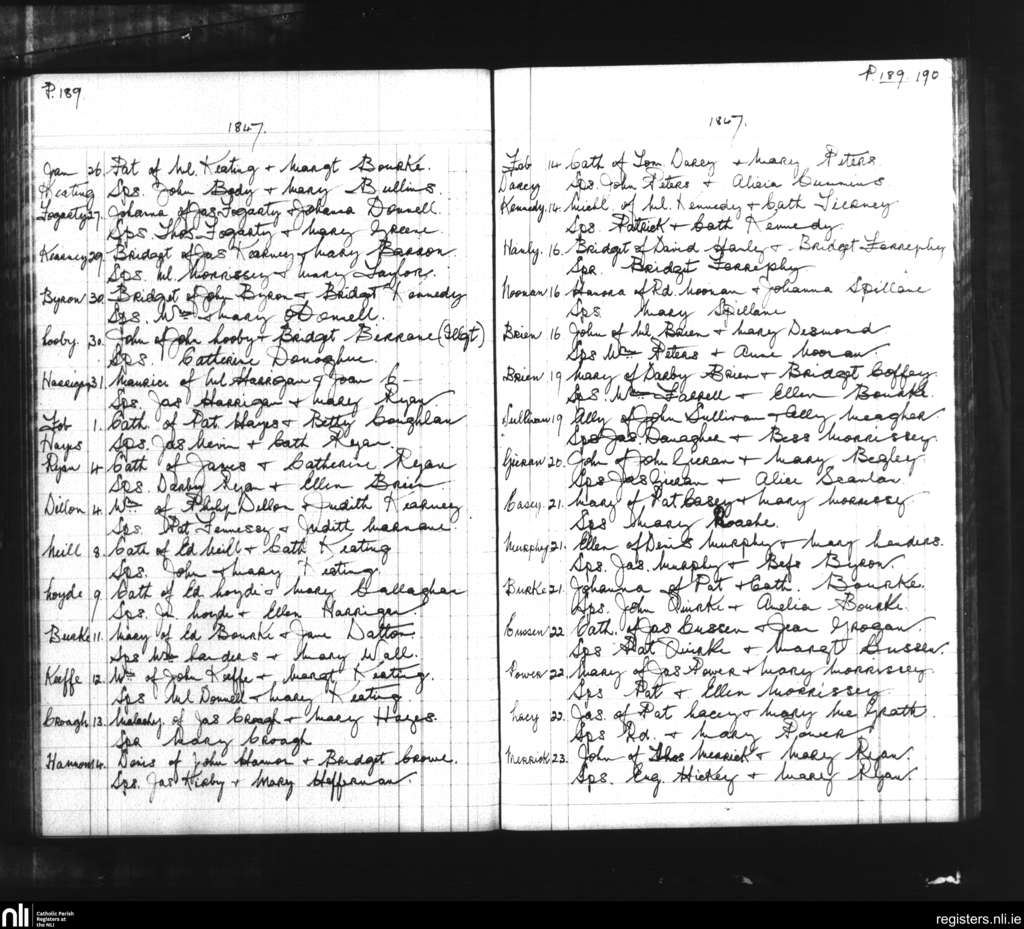 P. 189
1847.
Jan 26 Pat of Ml Keating + Margt Bourke.
Keating Sps. John Body + Mary Bullins
Fogarty 27 Johanna of Jas Fogarty + Johanna Donnell.
Sps. Thos Fogarty + Mary Greene
Kearney 29 Bridgt of Jas Kearney + Mary Barron
Sps. Ml Morrissey + Mary Taylor.
Byron 30. Bridget of John Byron + Bridgt Kennedy
Sps. Wm + Mary O'Donnell.
Looby. 30. John of John Looby + Bridgt Berrane (Illgt)
Sps. Catherine Donoghue.
Harrigan 31. Maurice of Ml Harrogan + Joan
Sps. Jas Harrigan + Mary Ryan
Feb 1. Cath. of Pat. Hayes + Betty Coughlan
Hayes Sps. Jas Nevin + Cath Ryan.
Ryan 4. Cath of James + Catherine Ryan
Sps. Darby Ryan + Ellen Brien
Dillon 4. Wm of Philip Dillon + Judith Kearney
Sps. Pat Fennessy + Judith Marnane
Neill 8. Cath of Ed Neill + Cath Keating
Sps. John + Mary Keating.
Loyde 9. Cath of Ed Loyde + Mary Callaghan
Sps. Jn Loyde + Ellen Harrigan
Burke 11. Mary of Ed Bourke + Jane Dalton.
Sps Wm Landers + Mary Wall.
Keeffe 12. Wm of John Keeffe + Margt Keating.
Sps. Ml Donnell + Mary Keating
Croagh 13. Malachy of Jas Croagh + Mary Hayes.
Spr Mary Croagh
Hannon 14. Denis of John Hannon + Bridget Crowe.
Sps. Jas Kirby + Mary Heffernan
P. 189 190
1847.
Feb 14 Cath of Tom Darcy + Mary Peters
Darcy Sps. John Peters + Alicia Cummins
Kennedy 14. Michl of Ml Kennedy + Cath Tierney
Sps. Patrick + Cath Kennedy
Hanly. 16. Bridgt of David Hanly + Bridgt Ferrephy
Spr. Bridget Ferrephy
Noonan 16 Hanora of Rd. Noonan + Johanna Spillane
Sps Mary Spillane
Brien 16 John of Ml Brien + Mary Desmond
Sps Wm Peters + Anne Noonan.
Brien 19 Mary of Darby Brien + Bridgt Coffey
Sps. Wm Farrell + Ellen Bourke.
Sullivan 19 Ally of John Sullivan + Ally Meagher
Sps Jas Donaghue + Bess Morrissey.
Guiran 20. John of John Guiran + Mary Begley.
Sps Jas Guiran + Alice Scanlan
Casey. 21. Mary of Pat Casey + Mary Morrissey
Sps Mary Roache.
Murphy 21. Ellen of Denis Murphy + Mary Landers.
Sps. Jas. Murphy + Bess Byron.
Burke 21. Johanna of Pat + Cath. Bourke.
Sps. John Quirke + Amelia Bourke.
Cussen 22 Cath. of Jas Cussen + Jean Grogan.
Sps Pat Quirke + Margt Cussen.
Power 22. Mary of Jas Power + Mary Morrissey.
Sps Pat + Ellen Morrissey
Lacy 22. Jas. of Pat Lacey + Mary Mc Grath.
Sps Rd. + Mary Power
Merrick 23. John of Thos Merrick + Mary Ryan.
Sps. Eug. Hickey + Mary Ryan
nli
Catholic Parish
Registers at
the NLI
registers.nli.ie